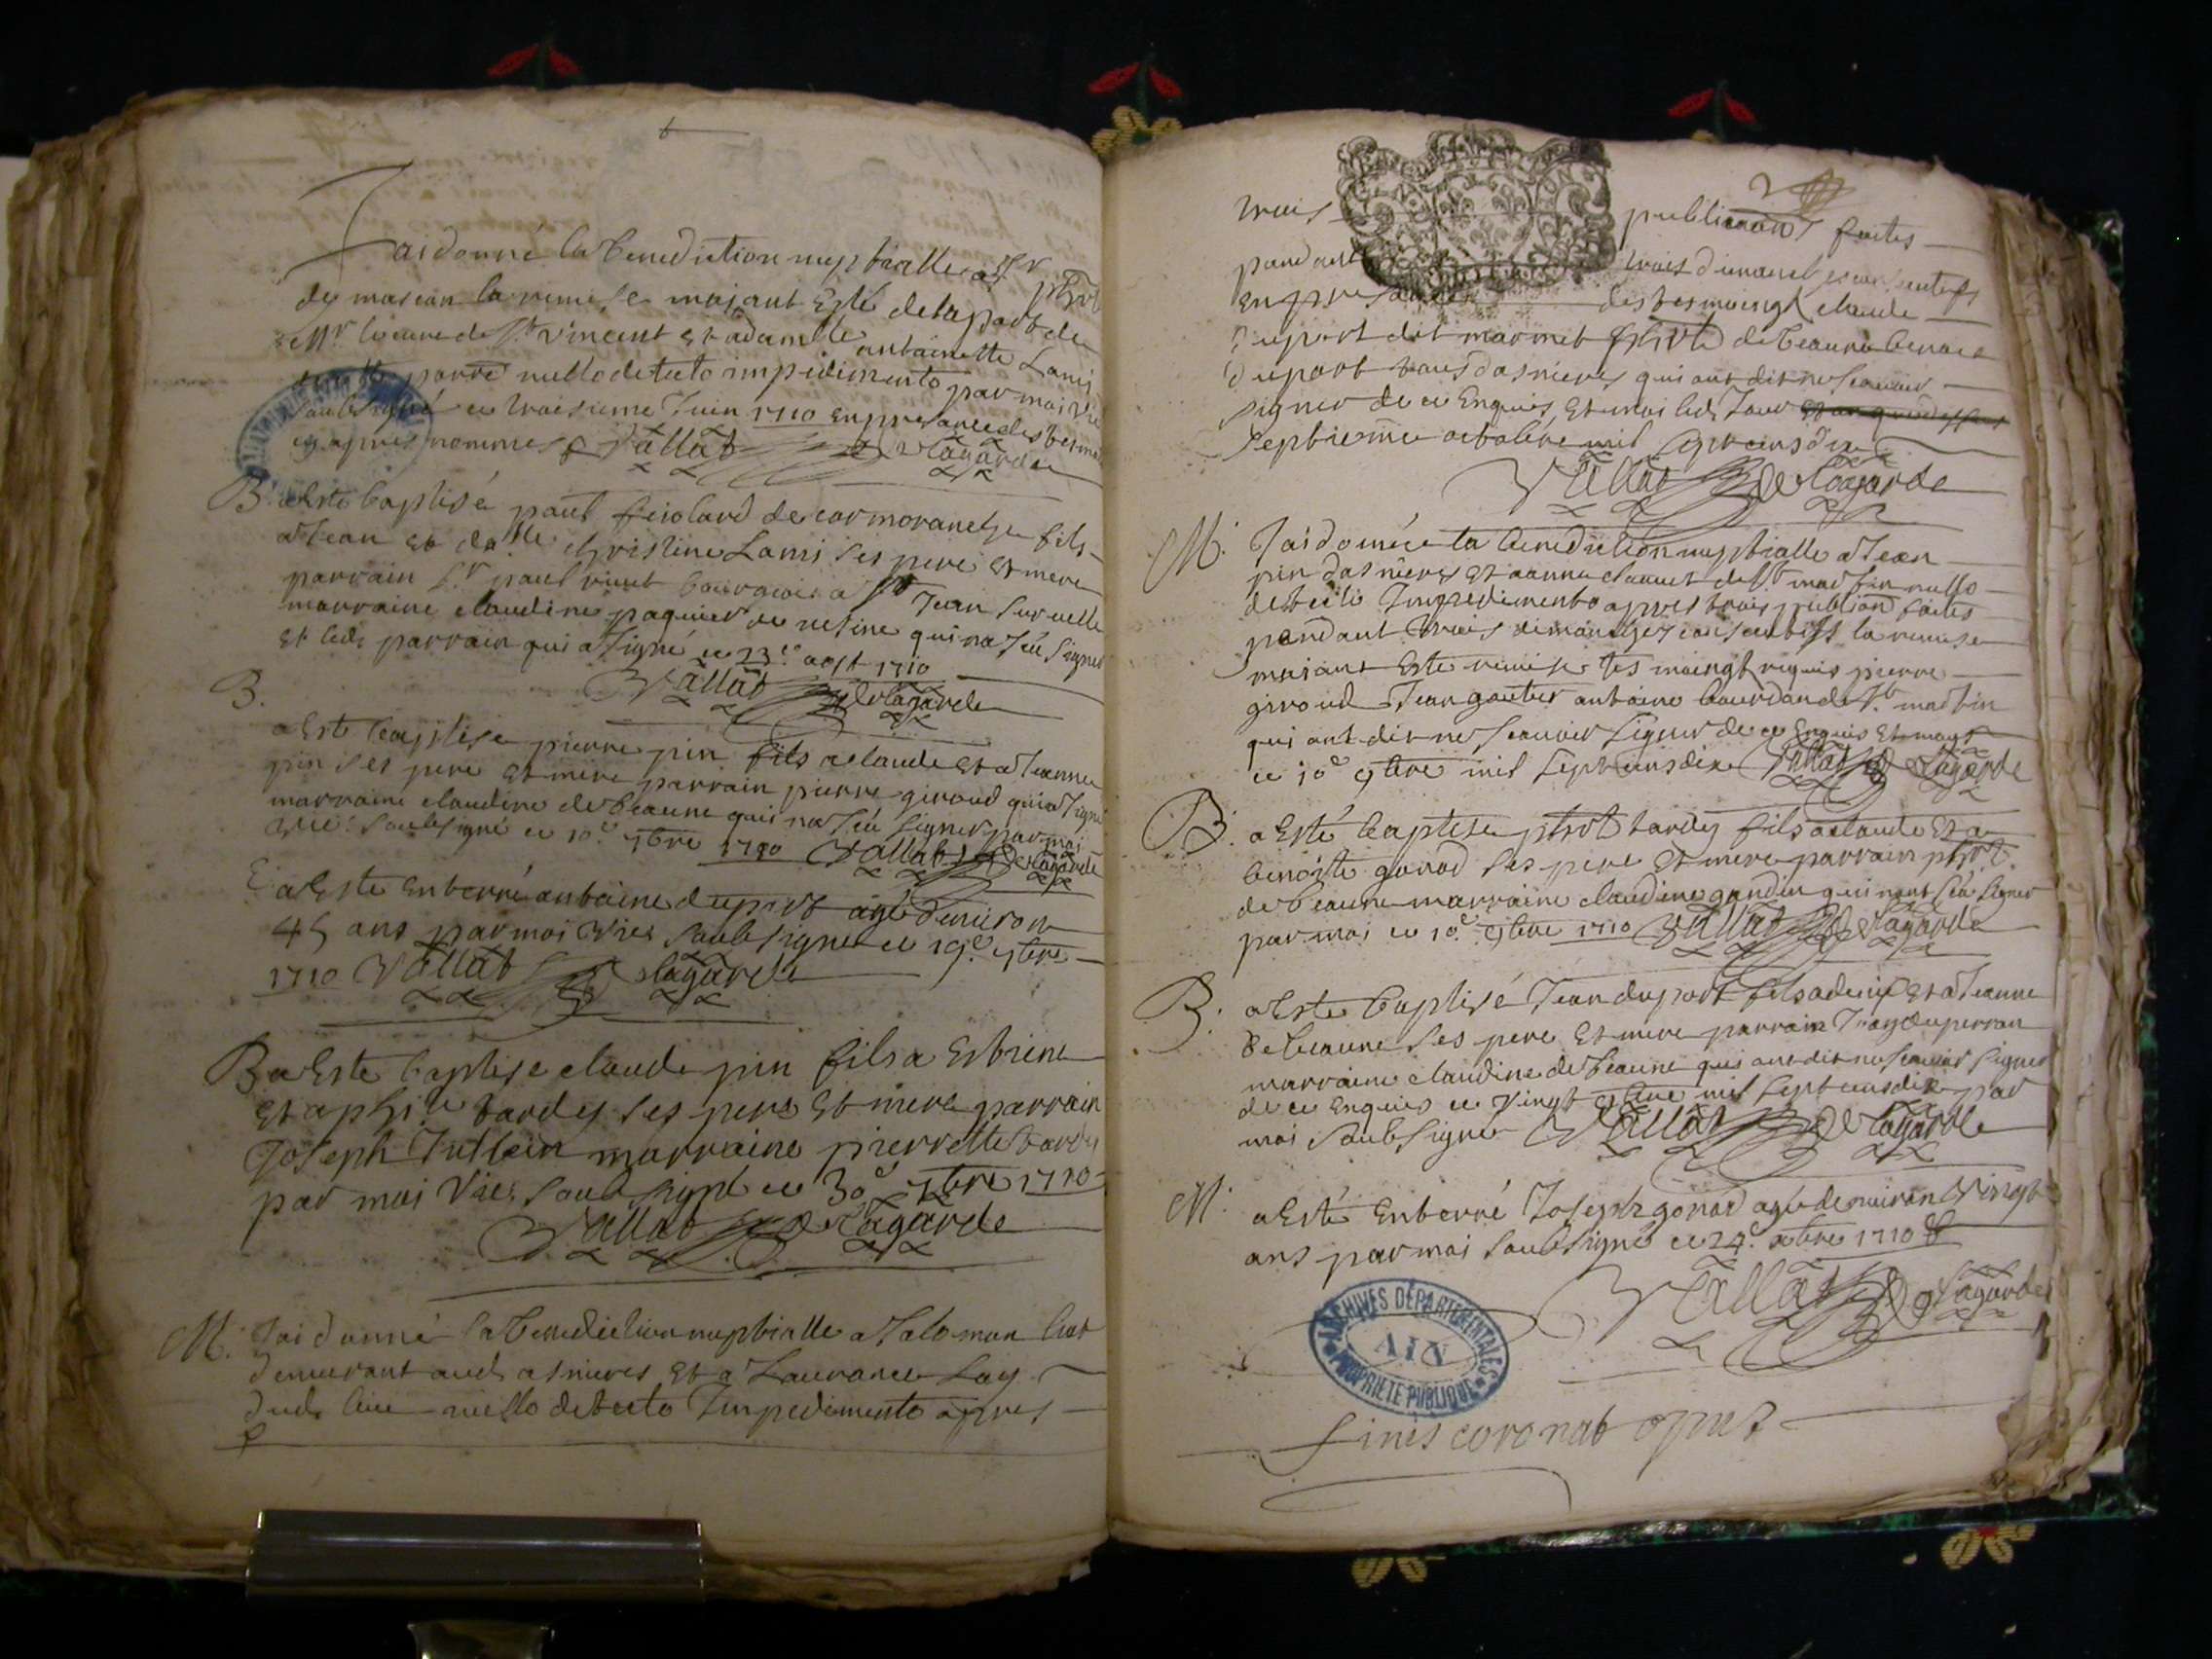 Jai donné la benediction nuptialle a Sr phbt
de mascon la remise majant Esté de la part de
Mr le cure de St Vincent et a damlle antoinette Lami
parre nullo detecto impedimento par moi vic
soubsigné ce troisieme Juin 1710 en presance des tesmoi
cy apres nommes Vallat De Lagarde
B. a Este baptisé paul feiolard de cormoranche fils
a Jean et de dlle christine Lami ses pere et mere
parrain Sr paul bourgois a St Jean sur velle
marraine claudine paquier de qui na scu signer
et led. parrain qui a signé ce 23e aost 1710
Vallat De Lagarde
B.
a Este baptise pierre pin fils a claude et a Jeanne
pin ses pere et mere parrain pierre giroud qui a signé
marraine claudine de beaune qui na scu signer par moi
vic. soubsigné ce 10e 7bre 1710 Vallat De Lagarde
E a Este Enterré antoine duport agé denviron
45 ans par moi vic. soubsigné ce 19e 7bre
1710 Vallat De Lagarde
B a Este baptise claude pin fils a Estiene
et a phile tardy ses pere et mere parrain
Joseph Jullein marraine pierrette tardy
par moi vic. soubsigné ce 30e 7bre 1710
Vallat De Lagarde
M. Jai donné la benediction nuptialle a Salomon
demeurant aud. asnieres et a Laurance Lay
dud. lieu nullo detecto Impedimento apres
2
trois publications faites
pandant trois dimanches consecutifs
En presance des tesmoings claude
Duport dit marmet phbt de beaune benoit
Duport tous dasnieres qui ont dit ne scavoir
signer de ce Enquis, et moi led. Jour
septieme octobre mil sept cens dix
Vallat De Lagarde
M. Jai donnée la benediction nuptialle a Jean
pin dasnieres et a anne clauet de St martin nullo
detecto Impedimento apres trois publions faites
pendant trois dimanches consecutifs la remise
majant Este remise tesmoingt requis pierre
giroud Jean gautier antoine bourdon de St martin
qui ont dit ne scavoir signer de ce Enquis et moy
ce 10e 9bre mil sept cens dix Vallat De Lagarde
B. a Esté baptise phbt tardy fils a claude et a
benoite gonod ses pere et mere parrain phbt
de beaune marraine claudine gandin qui nont scu signer
par moi ce 10e 9bre 1710 Vallat De Lagarde
B. a Este baptisé Jean duport fils a denis et a Jeanne
de beaune ses pere et mere parrain Jean duperron
marraine claudine de beaune qui ont dit ne scavoir signer
de ce Enquis ce vingt 9bre mil sept cens dix par
moi soubsigne Vallat De Lagarde
M. a Esté Enterré Joseph gonod agé denviron vingt
ans par moi soubsigné ce 24e xbre 1710
Vallat De Lagarde
ARCHIVES DÉPARTEMENTALES
AIN
PROPRIETE PUBLIQUE
finis coronat opus